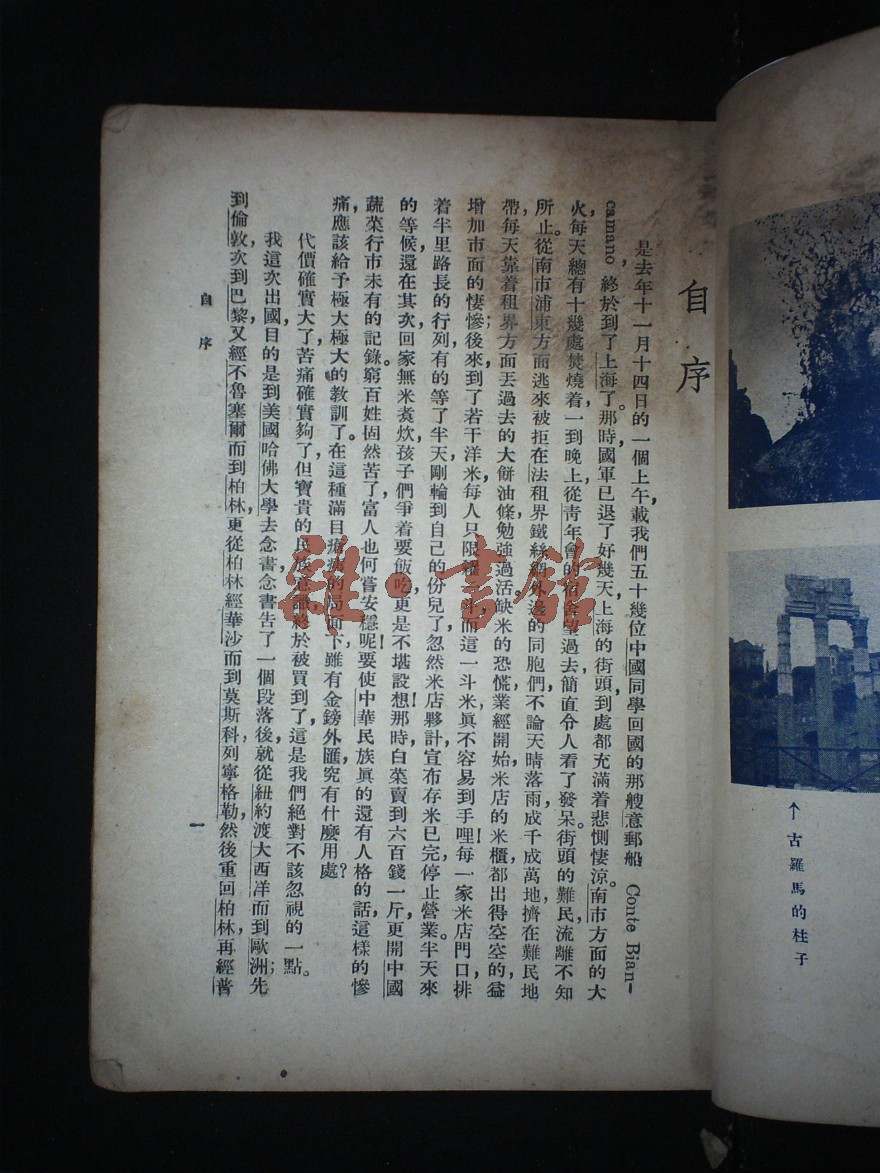 自序
是去年十一月十四日的一個上午，載我們五十幾位中國同學回國的那艘意郵船 Conte Bian-
camano，終於到了上海了。那時，國軍已退了好幾天，上海的街頭，到處都充滿着悲惻悽涼。南市方面的大
火，每天總有十幾處焚燒着，一到晚上，從青年會的宿舍望過去，簡直令人看了發呆。街頭的難民，流離不知
所止。從南市浦東方面逃來被拒在法租界鐵絲網外邊的同胞們，不論天晴落雨，成千成萬地擠在難民地
帶，每天靠着租界方面丟過去的大餅油條勉強過活。缺米的恐慌，業經開始，米店的米櫃，都出得空空的，益
增加市面的悽慘；後來，到了若干洋米，每人只限糴一斗，而這一斗米眞不容易到手哩！每一家米店門口，排
着半里路長的行列，有的等了半天，剛輪到自己的份兒了，忽然米店夥計宣布存米已完，停止營業。半天來
的等候，還在其次，回家無米煑炊，孩子們爭着要飯吃，更是不堪設想！那時，白菜賣到六百錢一斤，更開中國
蔬菜行市未有的記錄。窮百姓固然苦了，富人也何嘗安穩呢？要使中華民族眞的還有人格的話，這樣的慘
痛，應該給予極大極大的教訓了。在這種滿目瘡痍的局面下，雖有金鎊外匯，究有什麼用處？
代價確實大了，苦痛確實夠了，但寶貴的民族意識，終於被買到了，這是我們絕對不該忽視的一點。
我這次出國，目的是到美國哈佛大學去念書，念書告了一個段落後，就從紐約渡大西洋而到歐洲；先
到倫敦，次到巴黎，又經不魯塞爾而到柏林，更從柏林經華沙而到莫斯科，列寧格勒，然後重回柏林，再經普
自序
一
↑古羅馬的柱子
雜·書館